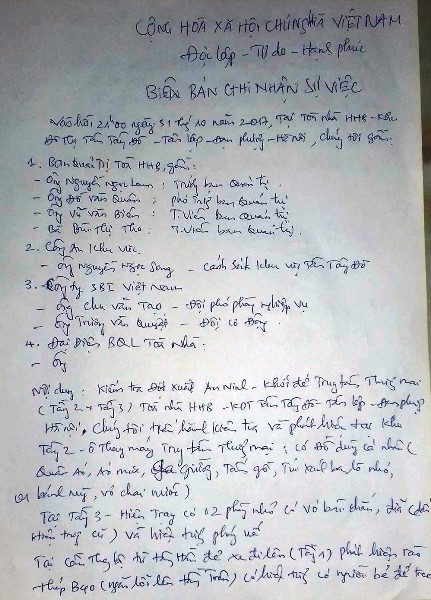 CỘNG HOÀ XÃ HỘI CHỦ NGHĨA VIỆT NAM
Độc lập - Tự do - Hạnh phúc
BIÊN BẢN GHI NHẬN SỰ VIỆC
Vào hồi 21h00 ngày 31 thg 10 năm 2017, Tại Toà nhà HHB - Khu
Đô Thị Tân Tây Đô - Tân lập - Đan phượng - Hà nội, chúng tôi gồm:
1. Ban Quản Trị Toà HHB, gồm:
- Ông Nguyễn Ngọc Lam : Trưởng ban Quản trị.
- Ông Đỗ Văn Quân : phó Trg ban Quản trị
- Ông Vũ Văn Biên : T.Viên ban Quản trị
- Bà Đàm Thị Thơ : T.Viên ban Quản trị.
2. Công An Khu vực.
- Ông Nguyễn Ngọc Song - Cảnh Sát Khu vực Tân Tây Đô
3. Công ty SBI Việt Nam
- Ông Chu Văn Tạo - Đội phó phòng nghiệp vụ
- Ông Trương Văn Quyết - Đội cơ động.
4. Đại Diện BQL Toà Nhà:
- Ông
Nội dung : Kiểm tra Đột xuất An Ninh - Khối đế Trung tâm Thương mại
(Tầng 2 + Tầng 3) Toà nhà HHB - KĐT Tân Tây Đô - Tân lập - Đan phượng
Hà nội, Chúng tôi tiến hành kiểm tra và phát hiện tại khu
Tầng 2 - Ô Thang máy Trung tâm Thương mại : có Đồ dùng cá nhân (
Quần Áo, Áo mưa, Giường, Tấm gỗ, Túi xách ba lô nhỏ,
bánh mỳ, vỏ chai nước)
Tại Tầng 3 - Hiện Trạng có 02 phòng nhỏ có vỏ bao chăn,
và hiện tượng phóng uế
Tại cầu Thang bộ từ Tầng Hầm để xe đi lên (Tầng 1) phát hiện rào
thép B40 có hiện tượng có người bẻ để